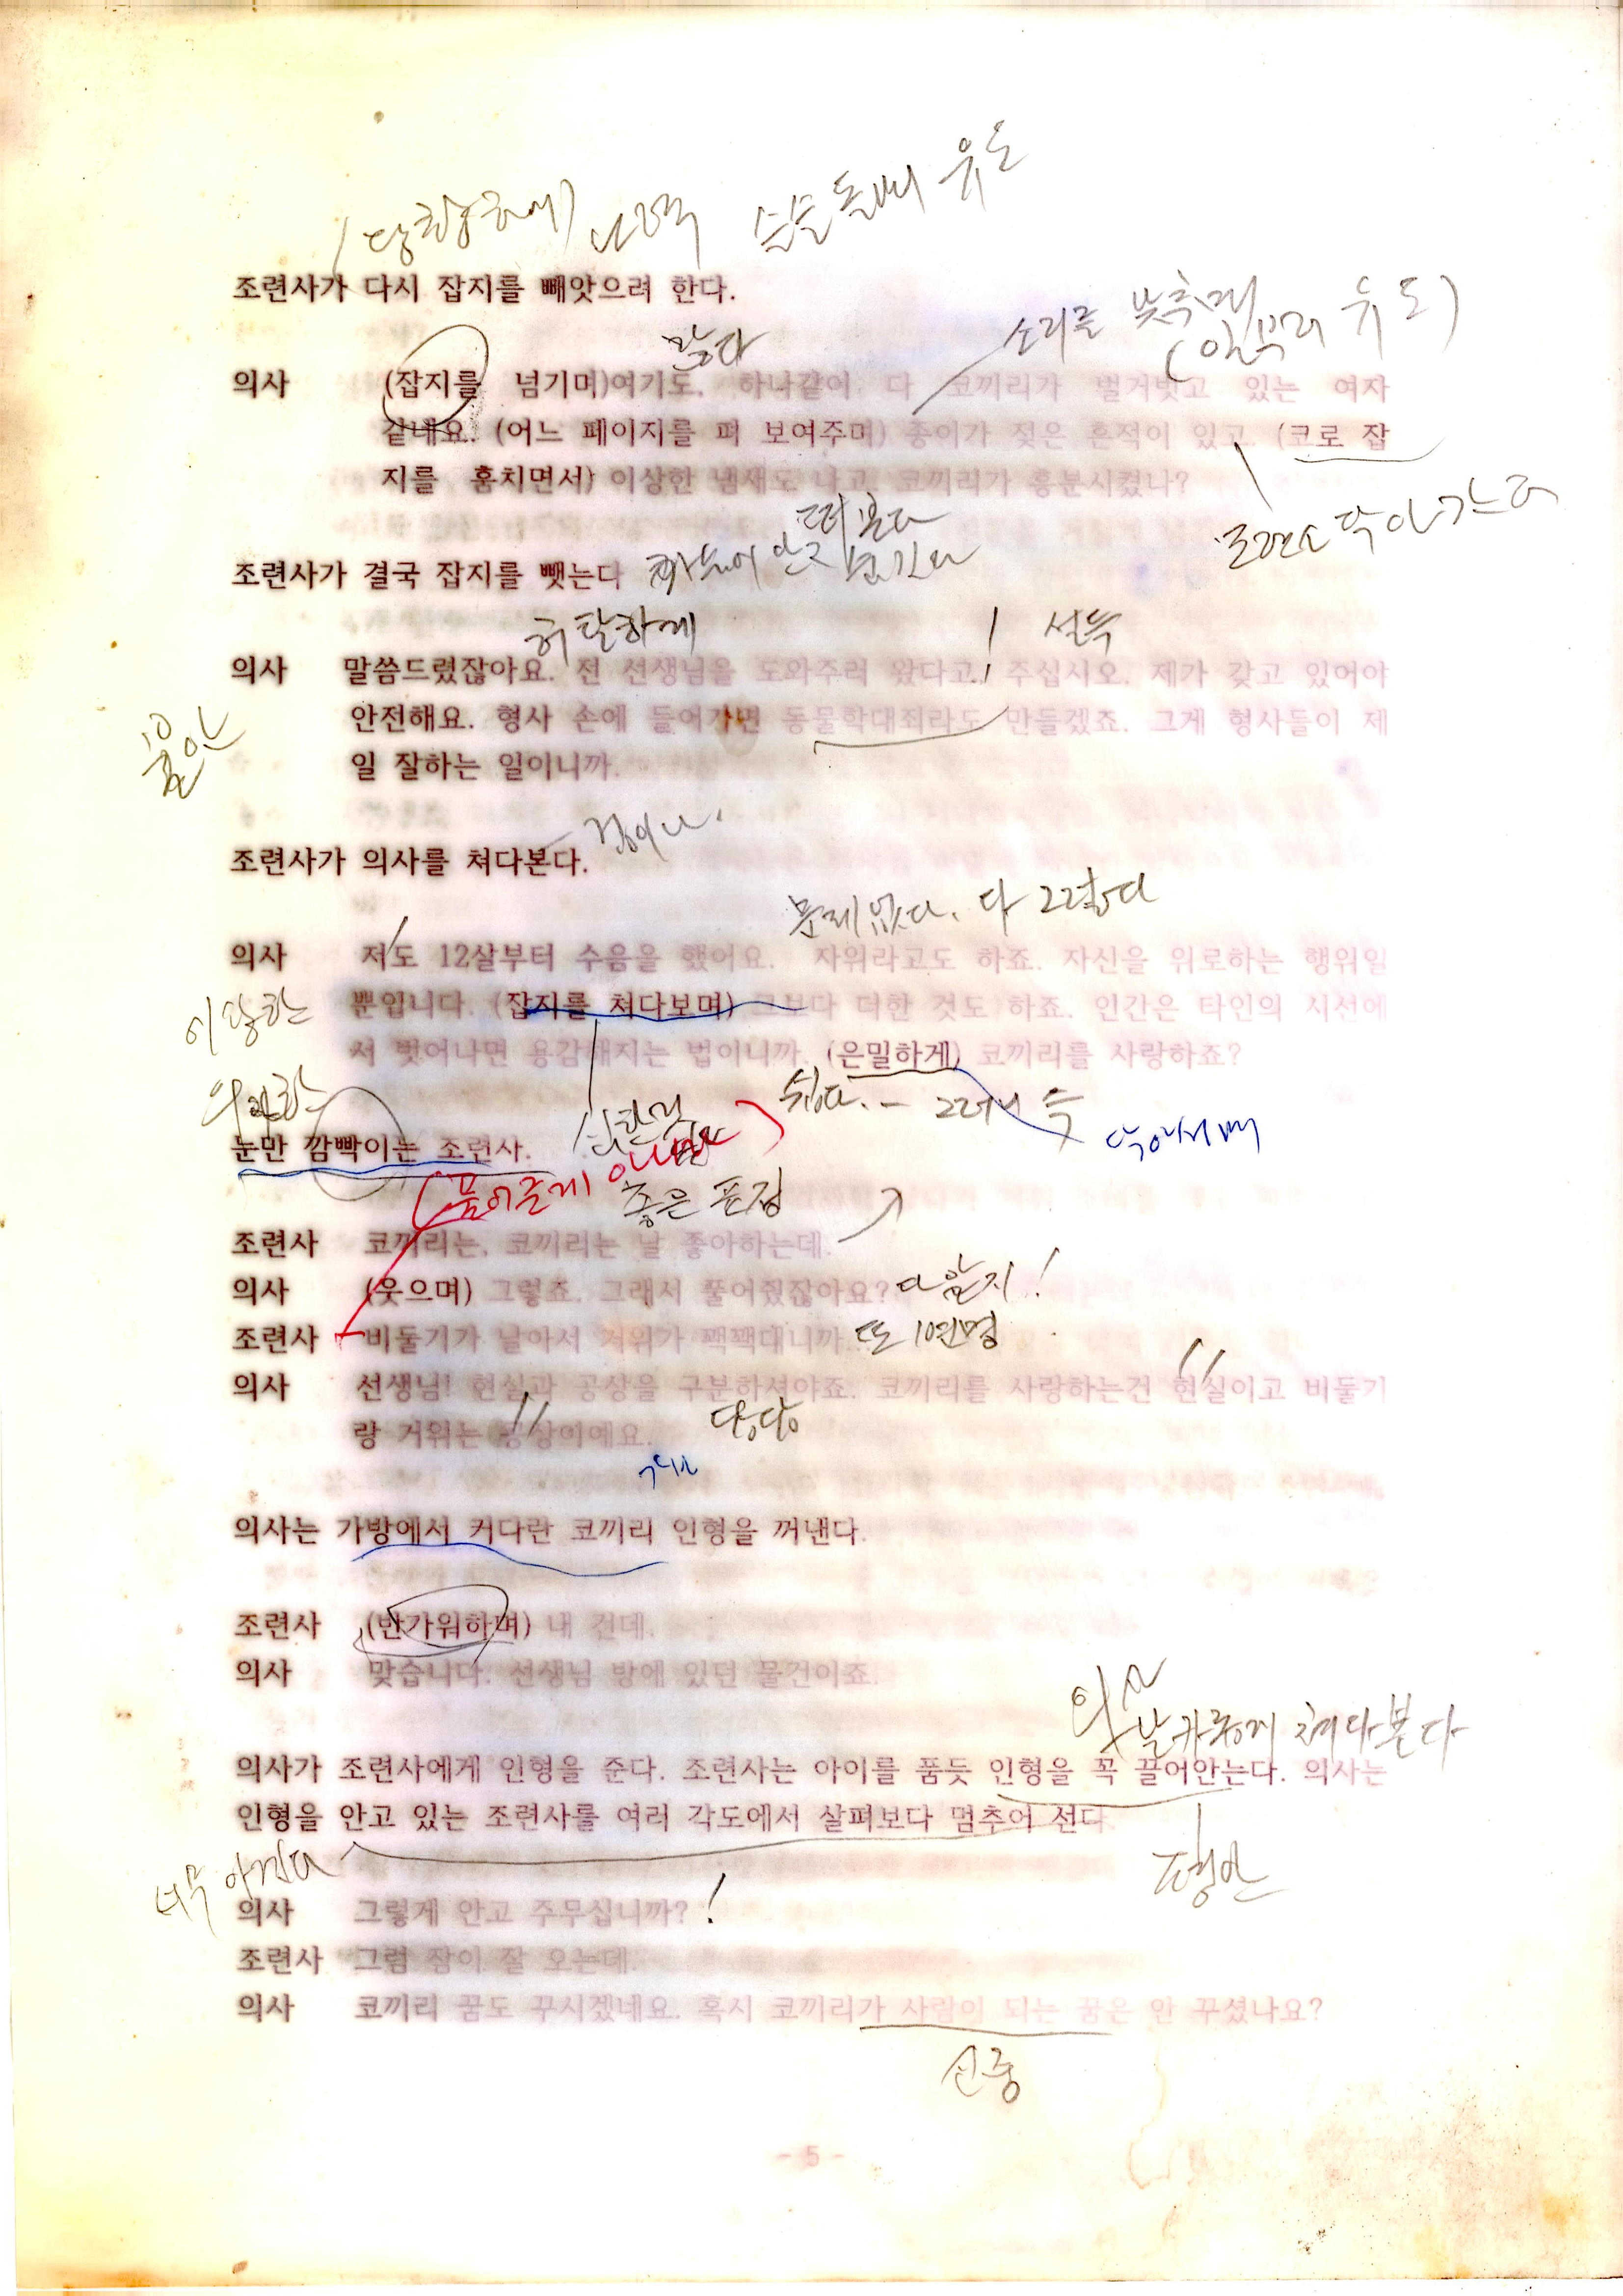 조련사가 다시 잡지를 빼앗으려 한다.
소리를 낮추며
(일부러 유도)
많다
의사 (잡지를 넘기며)여기도, 하나같이 다 코끼리가 벌거벗고 있는 여자
같네요. (어느 페이지를 펴 보여주며) 종이가 젖은 흔적이 있고. (코로 잡
지를 훔치면서) 이상한 냄새도 나고. 코끼리가 흥분시켰나?
조련사가 결국 잡지를 뺏는다
허탈하게
! 설득
의사 말씀드렸잖아요. 전 선생님을 도와주러 왔다고. 주십시오. 제가 갖고 있어야
안전해요. 형사 손에 들어가면 동물학대죄라도 만들겠죠. 그게 형사들이 제
일 잘하는 일이니까.
조련사가 의사를 쳐다본다.
문제없다. 다 그렇다
의사 저도 12살부터 수음을 했어요. 자위라고도 하죠. 자신을 위로하는 행위일
뿐입니다. (잡지를 쳐다보며) 그보다 더한 것도 하죠. 인간은 타인의 시선에
서 벗어나면 용감해지는 법이니까. (은밀하게) 코끼리를 사랑하죠?
눈만 깜빡이는 조련사.
좋은 표정
조련사 코끼리는, 코끼리는 날 좋아하는데.
의사 (웃으며) 그렇죠. 그래서 풀어줬잖아요? 다 알지!
조련사 비둘기가 날아서 거위가 꽥꽥대니까...
의사 선생님! 현실과 공상을 구분하셔야죠. 코끼리를 사랑하는건 현실이고 비둘기
랑 거위는 공상이에요.
당당
의사는 가방에서 커다란 코끼리 인형을 꺼낸다.
조련사 (반가워하며) 내 건데.
의사 맞습니다. 선생님 방에 있던 물건이죠.
날카롭게 쳐다본다
의사가 조련사에게 인형을 준다. 조련사는 아이를 품듯 인형을 꼭 끌어안는다. 의사는
인형을 안고 있는 조련사를 여러 각도에서 살펴보다 멈추어 선다.
의사 그렇게 안고 주무십니까? !
조련사 그럼 잠이 잘 오는데.
의사 코끼리 꿈도 꾸시겠네요. 혹시 코끼리가 사람이 되는 꿈은 안 꾸셨나요?
신중
- 5 -